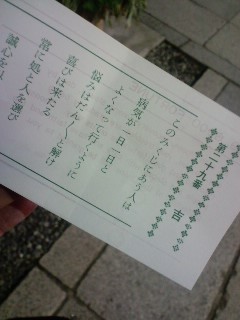 第二十九番 吉
このみくじにあう人は
病気が一日一日と
よくなって行くように
悩みはだん〱と解け
喜びは来たる
常に処と人を選び
誠心を以